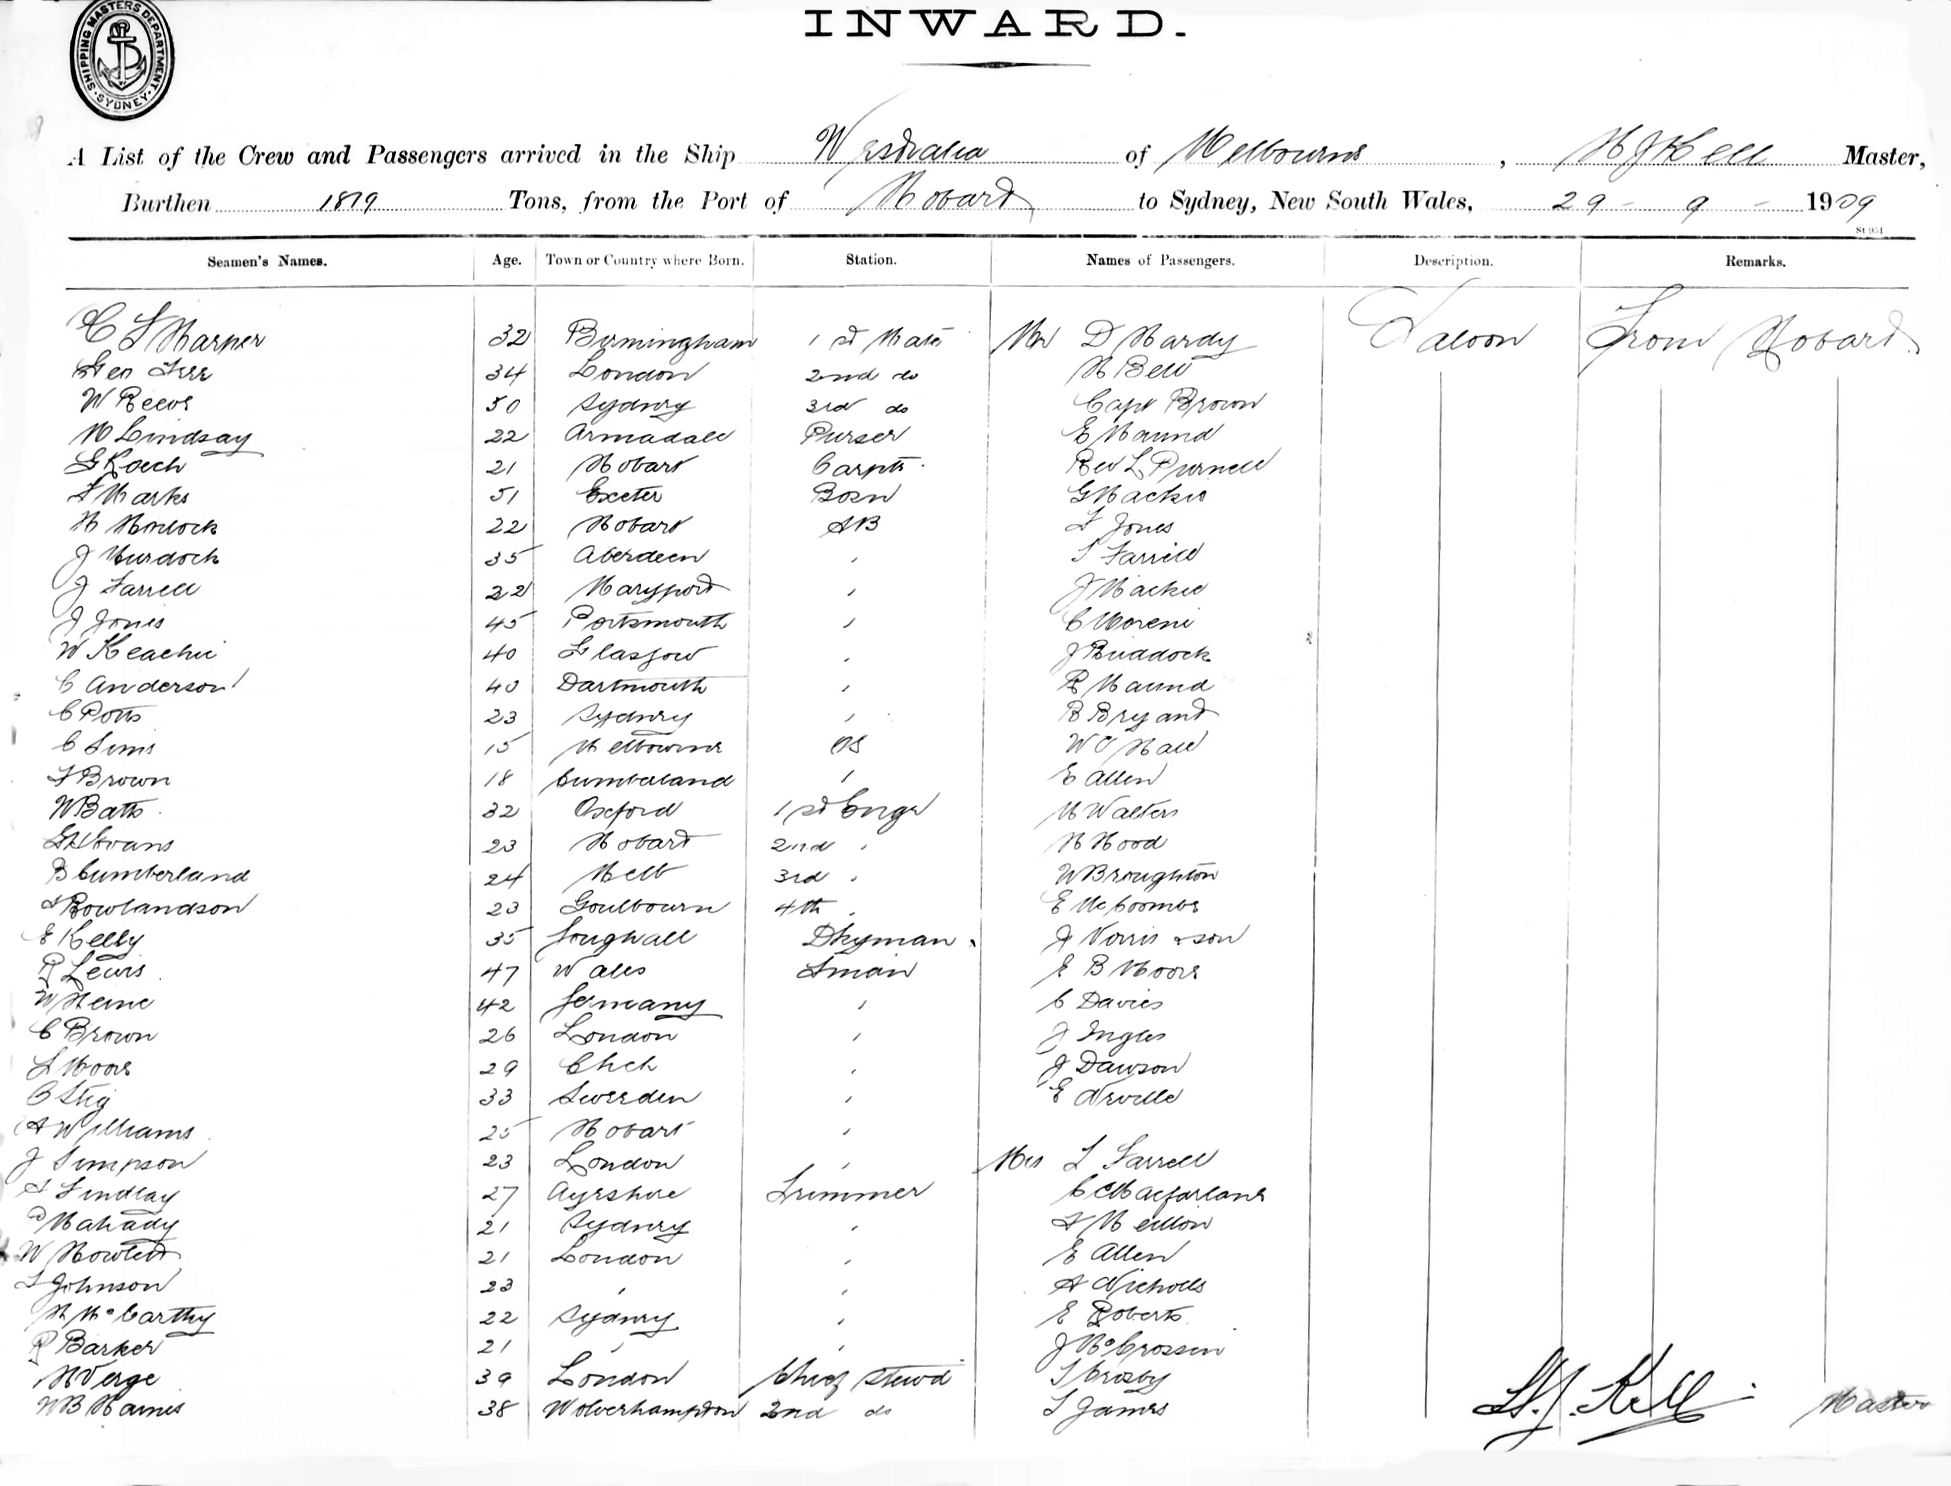 SHIPPING MASTERS DEPARTMENT SYDNEY
INWARD.
A List of the Crew and Passengers arrived in the Ship Westralia of Melbourne, H J Kell Master,
Burthen 1819 Tons, from the Port of Hobart to Sydney, New South Wales, 29 - 9 - 1909
St 951
Seamen's Names. Age. Town or Country where Born. Station. Names of Passengers. Description. Remarks.
C F Harper 32 Birmingham 1st Mate Mr D Hardy Saloon From Hobart
Geo 34 London 2nd do H Bell
W Reeve 50 Sydney 3rd do Capt Brown
M Lindsay 22 Armadale Purser E Maund
G Roech 21 Hobart Carptr. Rev L Purnell
F Marks 51 Exeter Bosn G Mackie
H 22 Hobart AB F Jones
J Murdoch 35 Aberdeen , T Farrell
J Farrell 22 Maryport , J Mackie
J Jones 45 Portsmouth , C Moreni
W Keachie 40 Glasgow , J Braddock
C Anderson 40 Dartmouth , R Maund
C Potts 23 Sydney , B Bryant
C Sims 15 Melbourne OS W O Hall
F Brown 18 Cumberland , E Allen
W Batts 32 Oxford 1st Engr M Walters
G H Evans 23 Hobart 2nd , H Hood
B Cumberland 24 Melb 3rd , W Broughton
A Rowlandson 23 Goulbourn 4th , E McCoombe
E Kelly 35 Dkyman J Norris & son
R Lewis 47 Wales Fman E B Moore
W Heine 42 Germany , C Davies
C Brown 26 London , J Ingles
F Moore 29 Chch , J Dawson
C Stig 33 Sweeden , E Neville
A Williams 25 Hobart ,
J Simpson 23 London , Mrs L Farrell
A Findlay 27 Ayrshire Trimmer C Macfarlane
P Mahady 21 Sydney , A Meillon
W Howlett 21 London , E Allen
F Johnson 23 , , A Nicholls
H McCarthy 22 Sydney , E Roberts
R Barker 21 , , J McCrossin
H Verge 39 London Chief Stewd T Crosby
W B Haines 38 Wolverhampton 2nd do T James
H. J. Kell Master